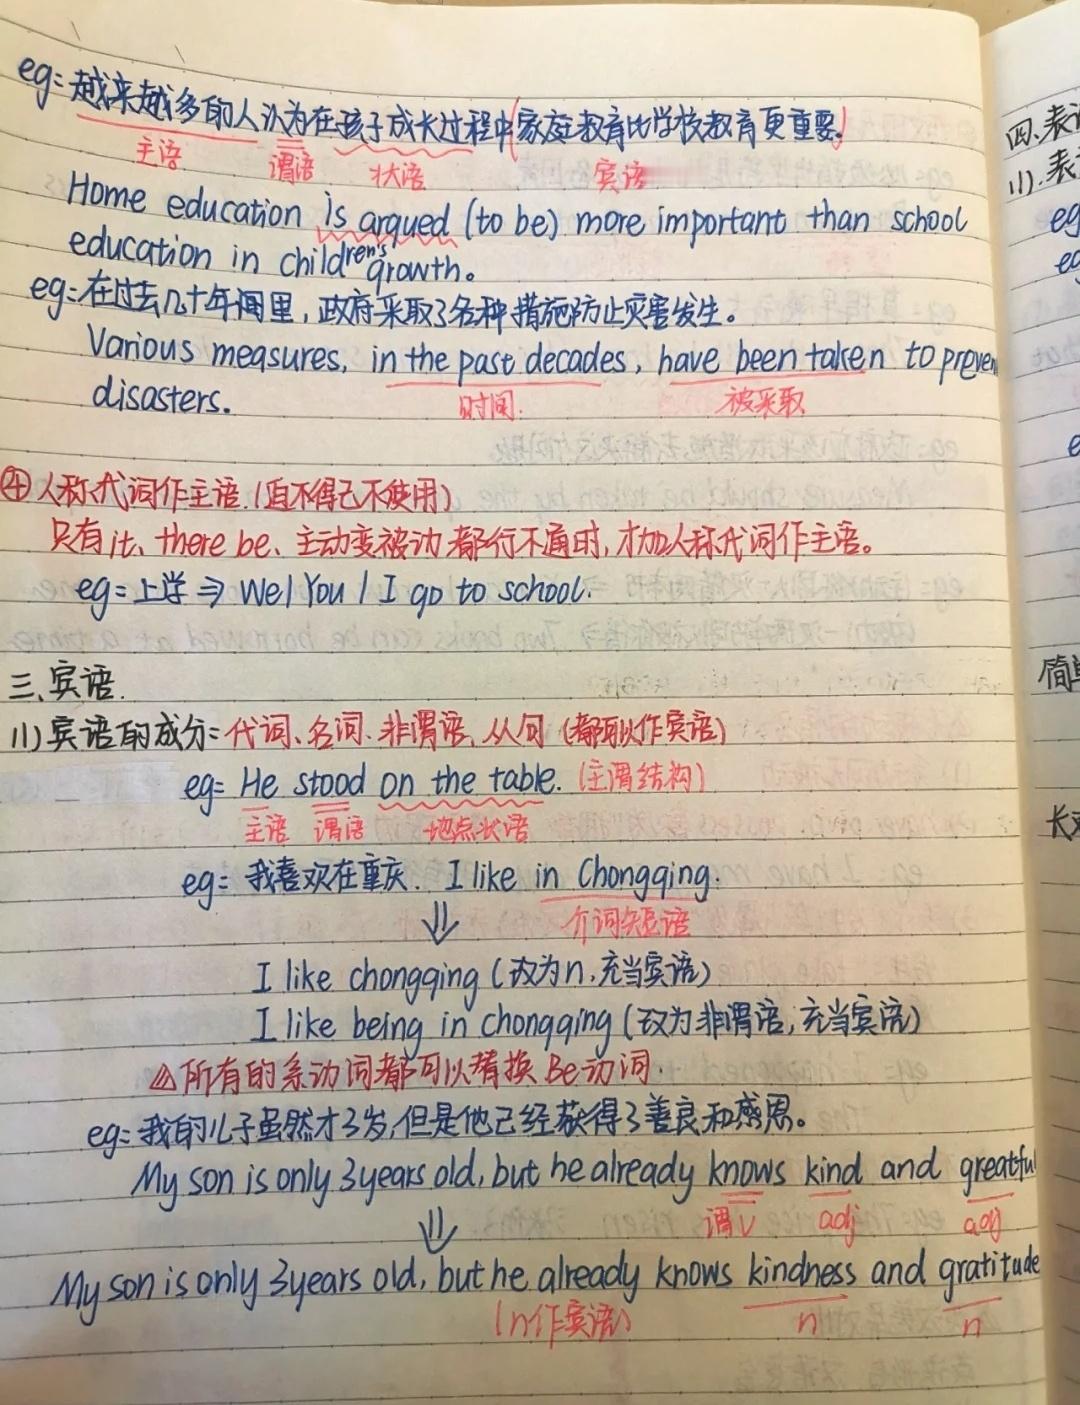 eg=越来越多的人认为在孩子成长过程中(家庭教育比学校教育更重要)
主语 谓语 状语 宾语
Home education is argued (to be) more important than school
education in children's growth。
eg=在过去几十年间里,政府采取了各种措施防止灾害发生。
Various measures, in the past decades, have been taken to preven
disasters.
时间. 被采取
④人称代词作主语.(迫不得已不使用)
只有it、there be、主动变被动都行不通时,才加人称代词作主语。
eg=上学⇒ We/You/I go to school.
三、宾语.
(1)宾语的成分=代词、名词、非谓语、从句(都可以作宾语)
eg= He stood on the table. (主谓结构)
主语 谓语 地点状语
eg= 我喜欢在重庆. I like in Chongqing.
介词短语
⇓
I like chongqing (改为n,充当宾语)
I like being in chongqing (改为非谓语,充当宾语)
△所有的系动词都可以替换Be动词.
eg=我的儿子虽然才3岁,但是他已经获得了善良和感恩。
My son is only 3years old, but he already knows kind and greatful
⇓ 谓V adj adj
My son is only 3years old, but he already knows kindness and gratitude
(n作宾语) n n
四、表
(1).表
eg
eg
e
简单
长